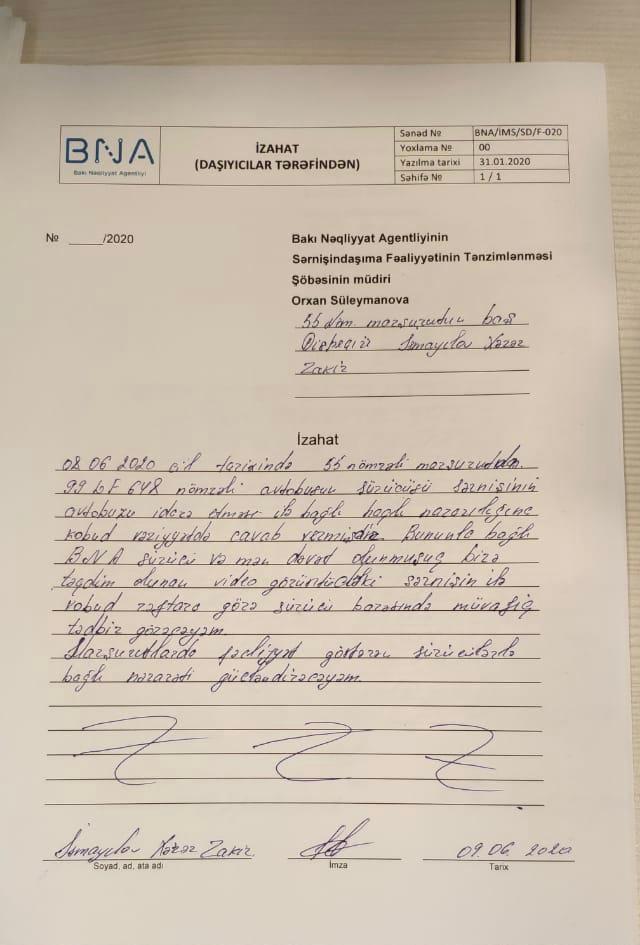 BNA
Bakı Nəqliyyat Agentliyi
İZAHAT
(DAŞIYICILAR TƏRƏFİNDƏN)
Sənəd № BNA/İMS/SD/F-020
Yoxlama № 00
Yazılma tarixi 31.01.2020
Səhifə № 1 / 1
№ _____/2020
Bakı Nəqliyyat Agentliyinin
Sərnişindaşıma Fəaliyyətinin Tənzimlənməsi
Şöbəsinin müdiri
Orxan Süleymanova
55 marşurudun baş
İsmayılov Xəzər
Zakir
İzahat
08 06 2020 tarixində 55 nömrəli marşurutda
99 LF 648 nömrəli avtobusun sürücüsü sərnişinin
avtobuzu idarə etməsi ilə bağlı bağlı narazılığına
kobud vəziyyətdə cavab vermişdir. Bununla bağlı
BNA sürücü və mən dəvət olunmuşuq bizə
təqdim olunan video görüntüdəki sərnişin ilə
kobud rəftara görə sürücü barəsində müvafiq
tədbir görəcəyəm.
Marşurutlarda fəaliyyət göstərən sürücülərlə
bağlı nəzarəti gücləndirəcəyəm.
İsmayılov Xəzər Zakir 09.06.2020
Soyad, ad, ata adı İmza Tarix